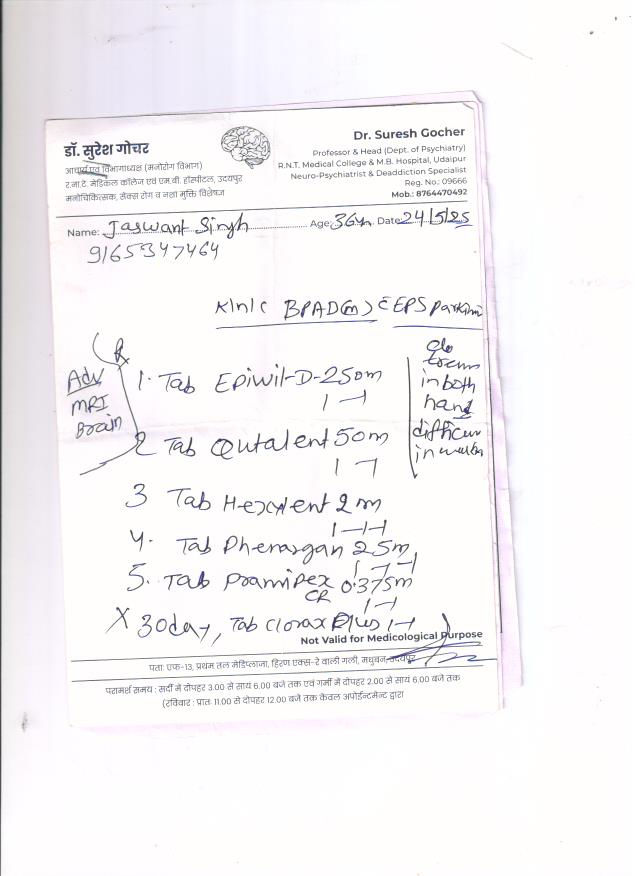 डॉ. सुरेश गोचर
आचार्य एवं विभागाध्यक्ष (मनोरोग विभाग)
र.ना.टे. मेडिकल कॉलेज एवं एम.बी. हॉस्पीटल, उदयपुर
मनोचिकित्सक, सैक्स रोग व नशा मुक्ति विशेषज्ञ
Dr. Suresh Gocher
Professor & Head (Dept. of Psychiatry)
R.N.T. Medical College & M.B. Hospital, Udaipur
Neuro-Psychiatrist & Deaddiction Specialist
Reg. No.: 09666
Mob.: 8764470492
Name: Jaswant Singh Age: 36 Date 24/5/25
9165347464
K/n/c BPAD(m) c̄ EPS
Adv
MRI
Brain
1. Tab Epiwil-D-250m
1 - 1
2 Tab Qutalent 50m
1 1
3 Tab Hexylent 2m
1-1-1
4. Tab Phenargan 25m
5. Tab Pramipex 0.375m
CR
1-1
X 30day, Tab Clorax Plus 1-1
c/o
in both
hand
in
Not Valid for Medicological Purpose
पता: एफ-13, प्रथम तल मेडिप्लाजा, हिरण एक्स-रे वाली गली, मधुबन, उदयपुर
परामर्श समय : सर्दी में दोपहर 3.00 से सायं 6.00 बजे तक एवं गर्मी में दोपहर 2.00 से सायं 6.00 बजे तक
(रविवार : प्रातः 11.00 से दोपहर 12.00 बजे तक केवल अपोईन्टमेन्ट द्वारा